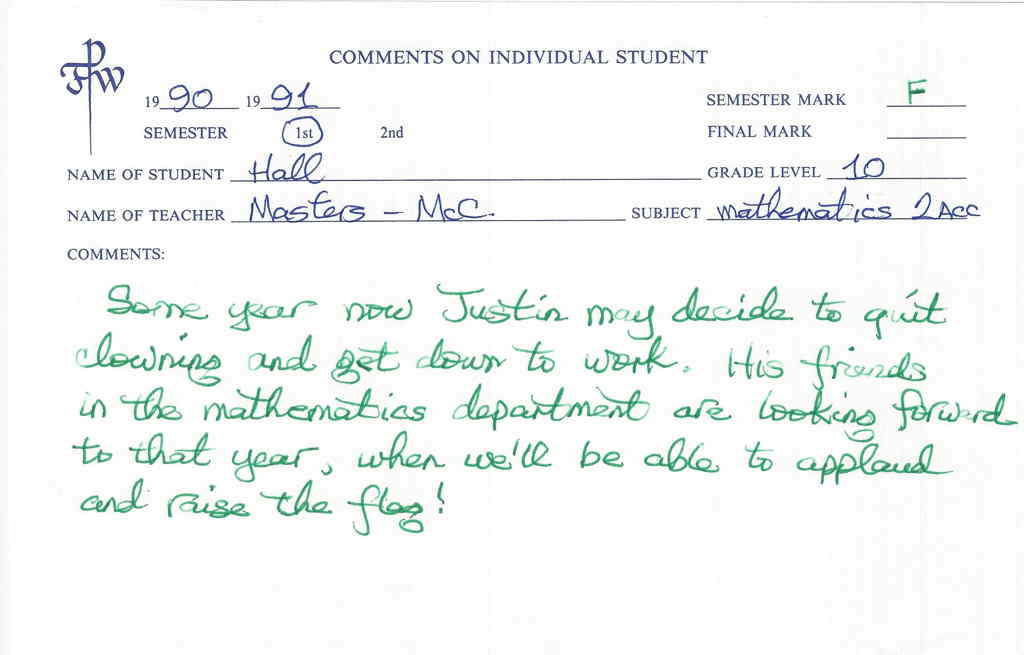 FPW
COMMENTS ON INDIVIDUAL STUDENT
19 90 19 91 SEMESTER MARK F
SEMESTER 1st 2nd FINAL MARK
NAME OF STUDENT Hall GRADE LEVEL 10
NAME OF TEACHER Masters - McC. SUBJECT mathematics 2Acc
COMMENTS:
Some year now Justin may decide to quit
clowning and get down to work. His friends
in the mathematics department are looking forward
to that year, when we'll be able to applaud
and raise the flag!